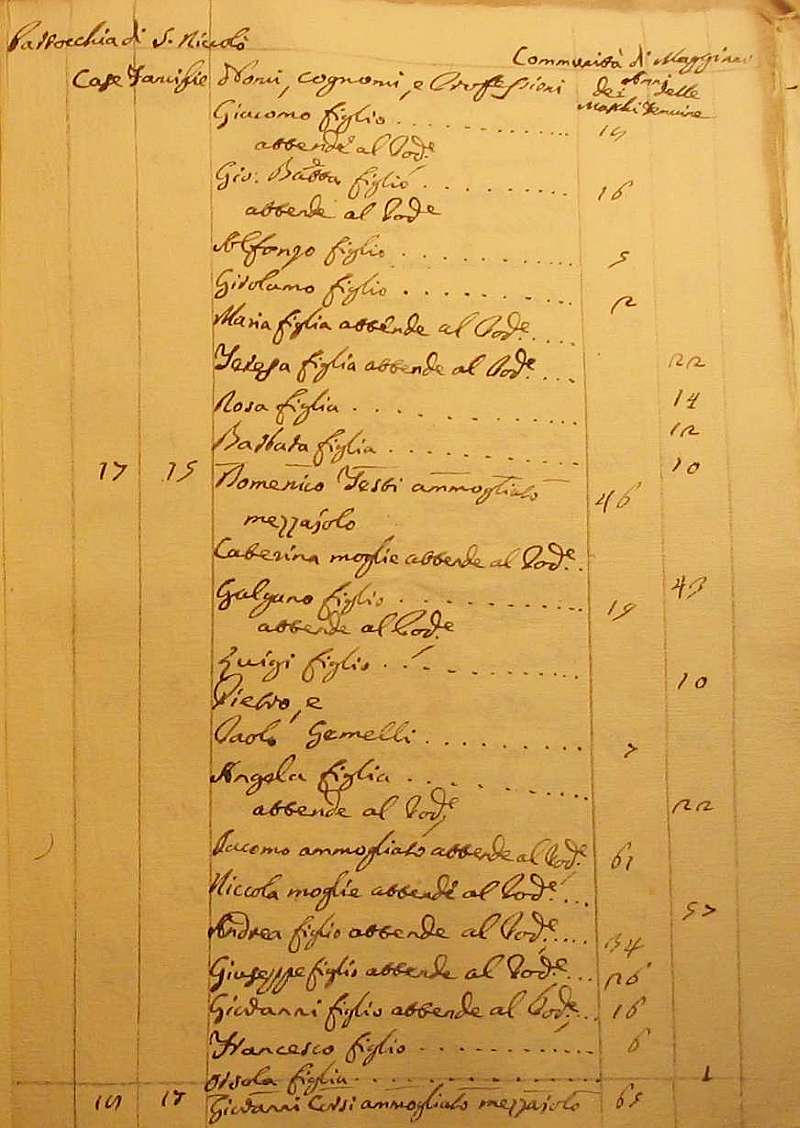 Parrocchia di S. Niccolò
Communità di
Case Famiglie Nomi, cognomi, e Professioni Anni
dei delle
Maschi Femine
Giacomo figlio . . . . . . . . . . . .
attende al Pod.e
Gio: Batta figlio . . . . . . . . . . 16
attende al Pod.e
Alfonso figlio . . . . . . . . . . . .
Girolamo figlio . . . . . . . . . . . 2
Maria figlia attende al Pod.e . . . . 22
Teresa figlia attende al Pod.e . . . 14
Rosa figlia . . . . . . . . . . . . 12
Barbara figlia . . . . . . . . . . . 10
17 15 Domenico ammogliato 46
mezzajolo
Caterina moglie attende al Pod.e . 43
Galgano figlio . . . . . . . . . . 19
attende al Pod.e
Luigi figlio . . . . . . . . . . . 10
Pietro, e
Paolo Gemelli . . . . . . . . . . 7
Angela figlia . . . . . . . . . . 22
attende al Pod.e
Jacomo ammogliato attende al Pod.e 61
Niccola moglie attende al Pod.e . . . 57
Andrea figlio attende al Pod.e . . . . . 34
Giuseppe figlio attende al Pod.e . . . 26
Giovanni figlio attende al Pod.e . . . 16
Francesco figlio . . . . . . . . . . . 6
Orsola figlia . . . . . . . . . . . . 1
17 Giovanni Corsi ammogliato mezzajolo 65